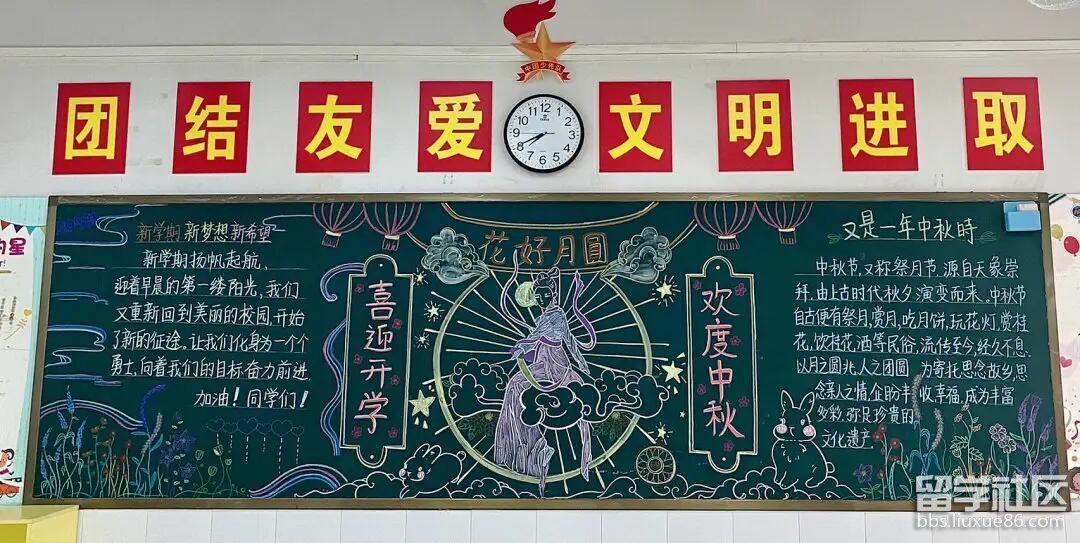 中国少先队
团结友爱
文明进取
12
1
2
3
4
5
6
7
8
9
10
11
的星
新学期 新梦想 新希望
新学期扬帆起航,
迎着早晨的第一缕阳光,我们
又重新回到美丽的校园,开始
了新的征途。让我们化身为一个个
勇士,向着我们的目标奋力前进.
加油!同学们!
喜迎开学
花好月圆
欢度中秋
又是一年中秋時
中秋节,又称祭月节.源自天象崇
拜.由上古时代秋夕演变而来.中秋节
自古便有祭月,赏月,吃月饼,玩花灯,赏桂
花,饮桂花酒等民俗,流传至今,经久不息.
以月之圆兆人之团圆 为寄托思念故乡,思
念亲人之情,企盼丰收幸福,成为丰富
多彩,弥足珍贵的
文化遗产
留学社区
bbs.liuxue86.com